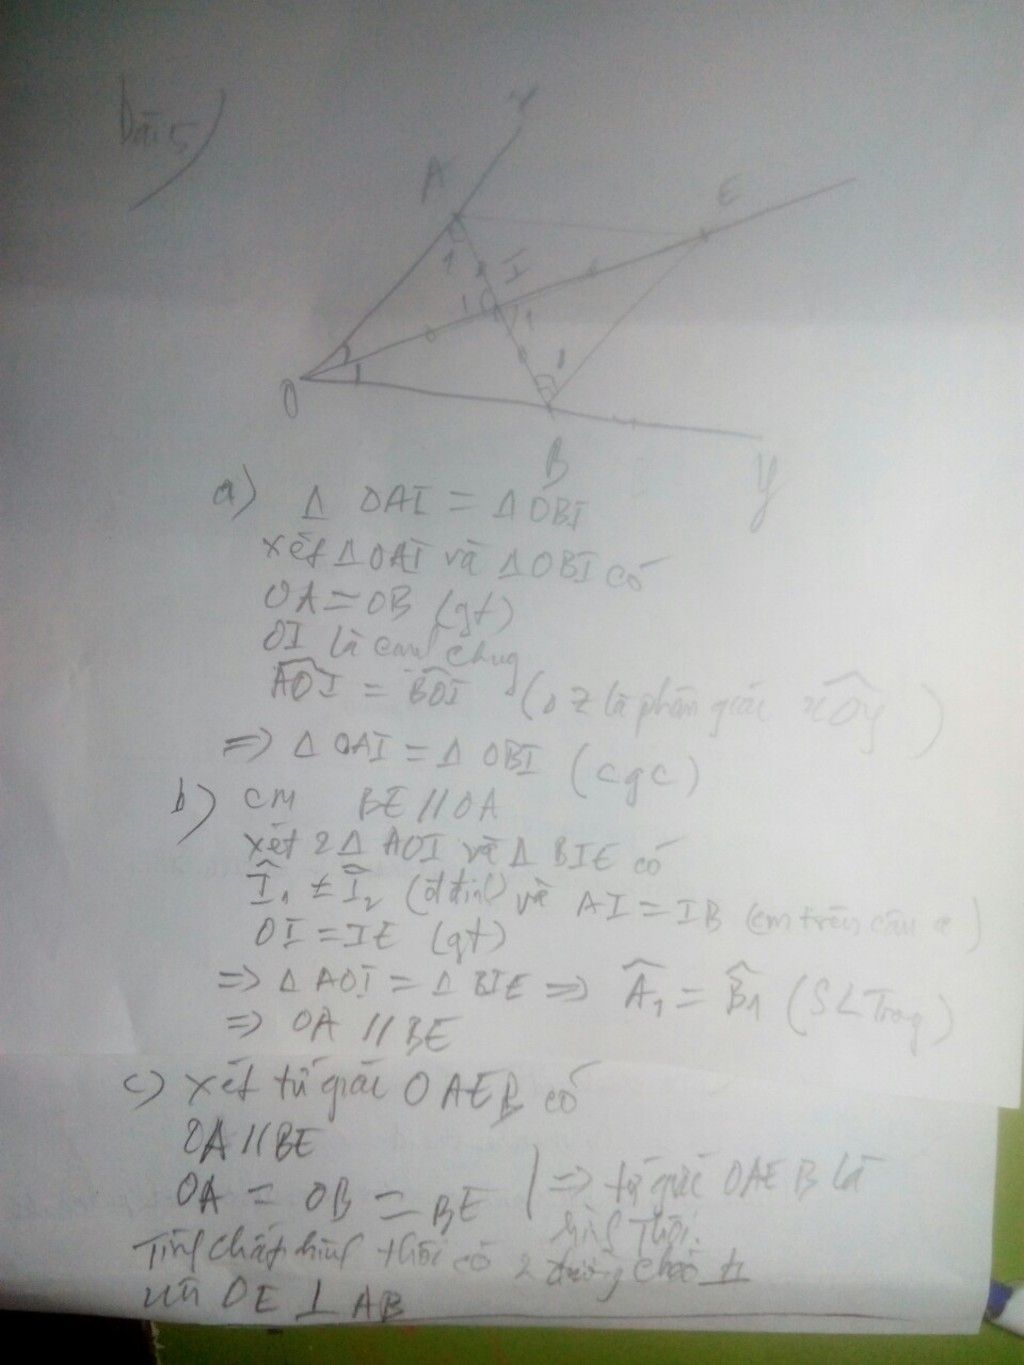 Bài 5)
x
A
E
1
I
1
1
1
O
1
B
y
a) Δ OAI = Δ OBI
xét Δ OAI và Δ OBI có
OA = OB (gt)
OI là cạnh chug
AOI = BOI (oz là phân giác xOy)
=> Δ OAI = Δ OBI (cgc)
b) cm BE // OA
xét 2 Δ AOI và Δ BIE có
I1 = I2 (đ đỉnh) và AI = IB (cm trên câu a)
OI = IE (gt)
=> Δ AOI = Δ BIE => A1 = B1 (SL Trog)
=> OA // BE
c) xét tứ giác OAEB có
OA // BE
OA = OB = BE | => tứ giác OAEB là
hình thoi.
Tính chất hình thoi có 2 đường chéo ⊥
nên OE ⊥ AB